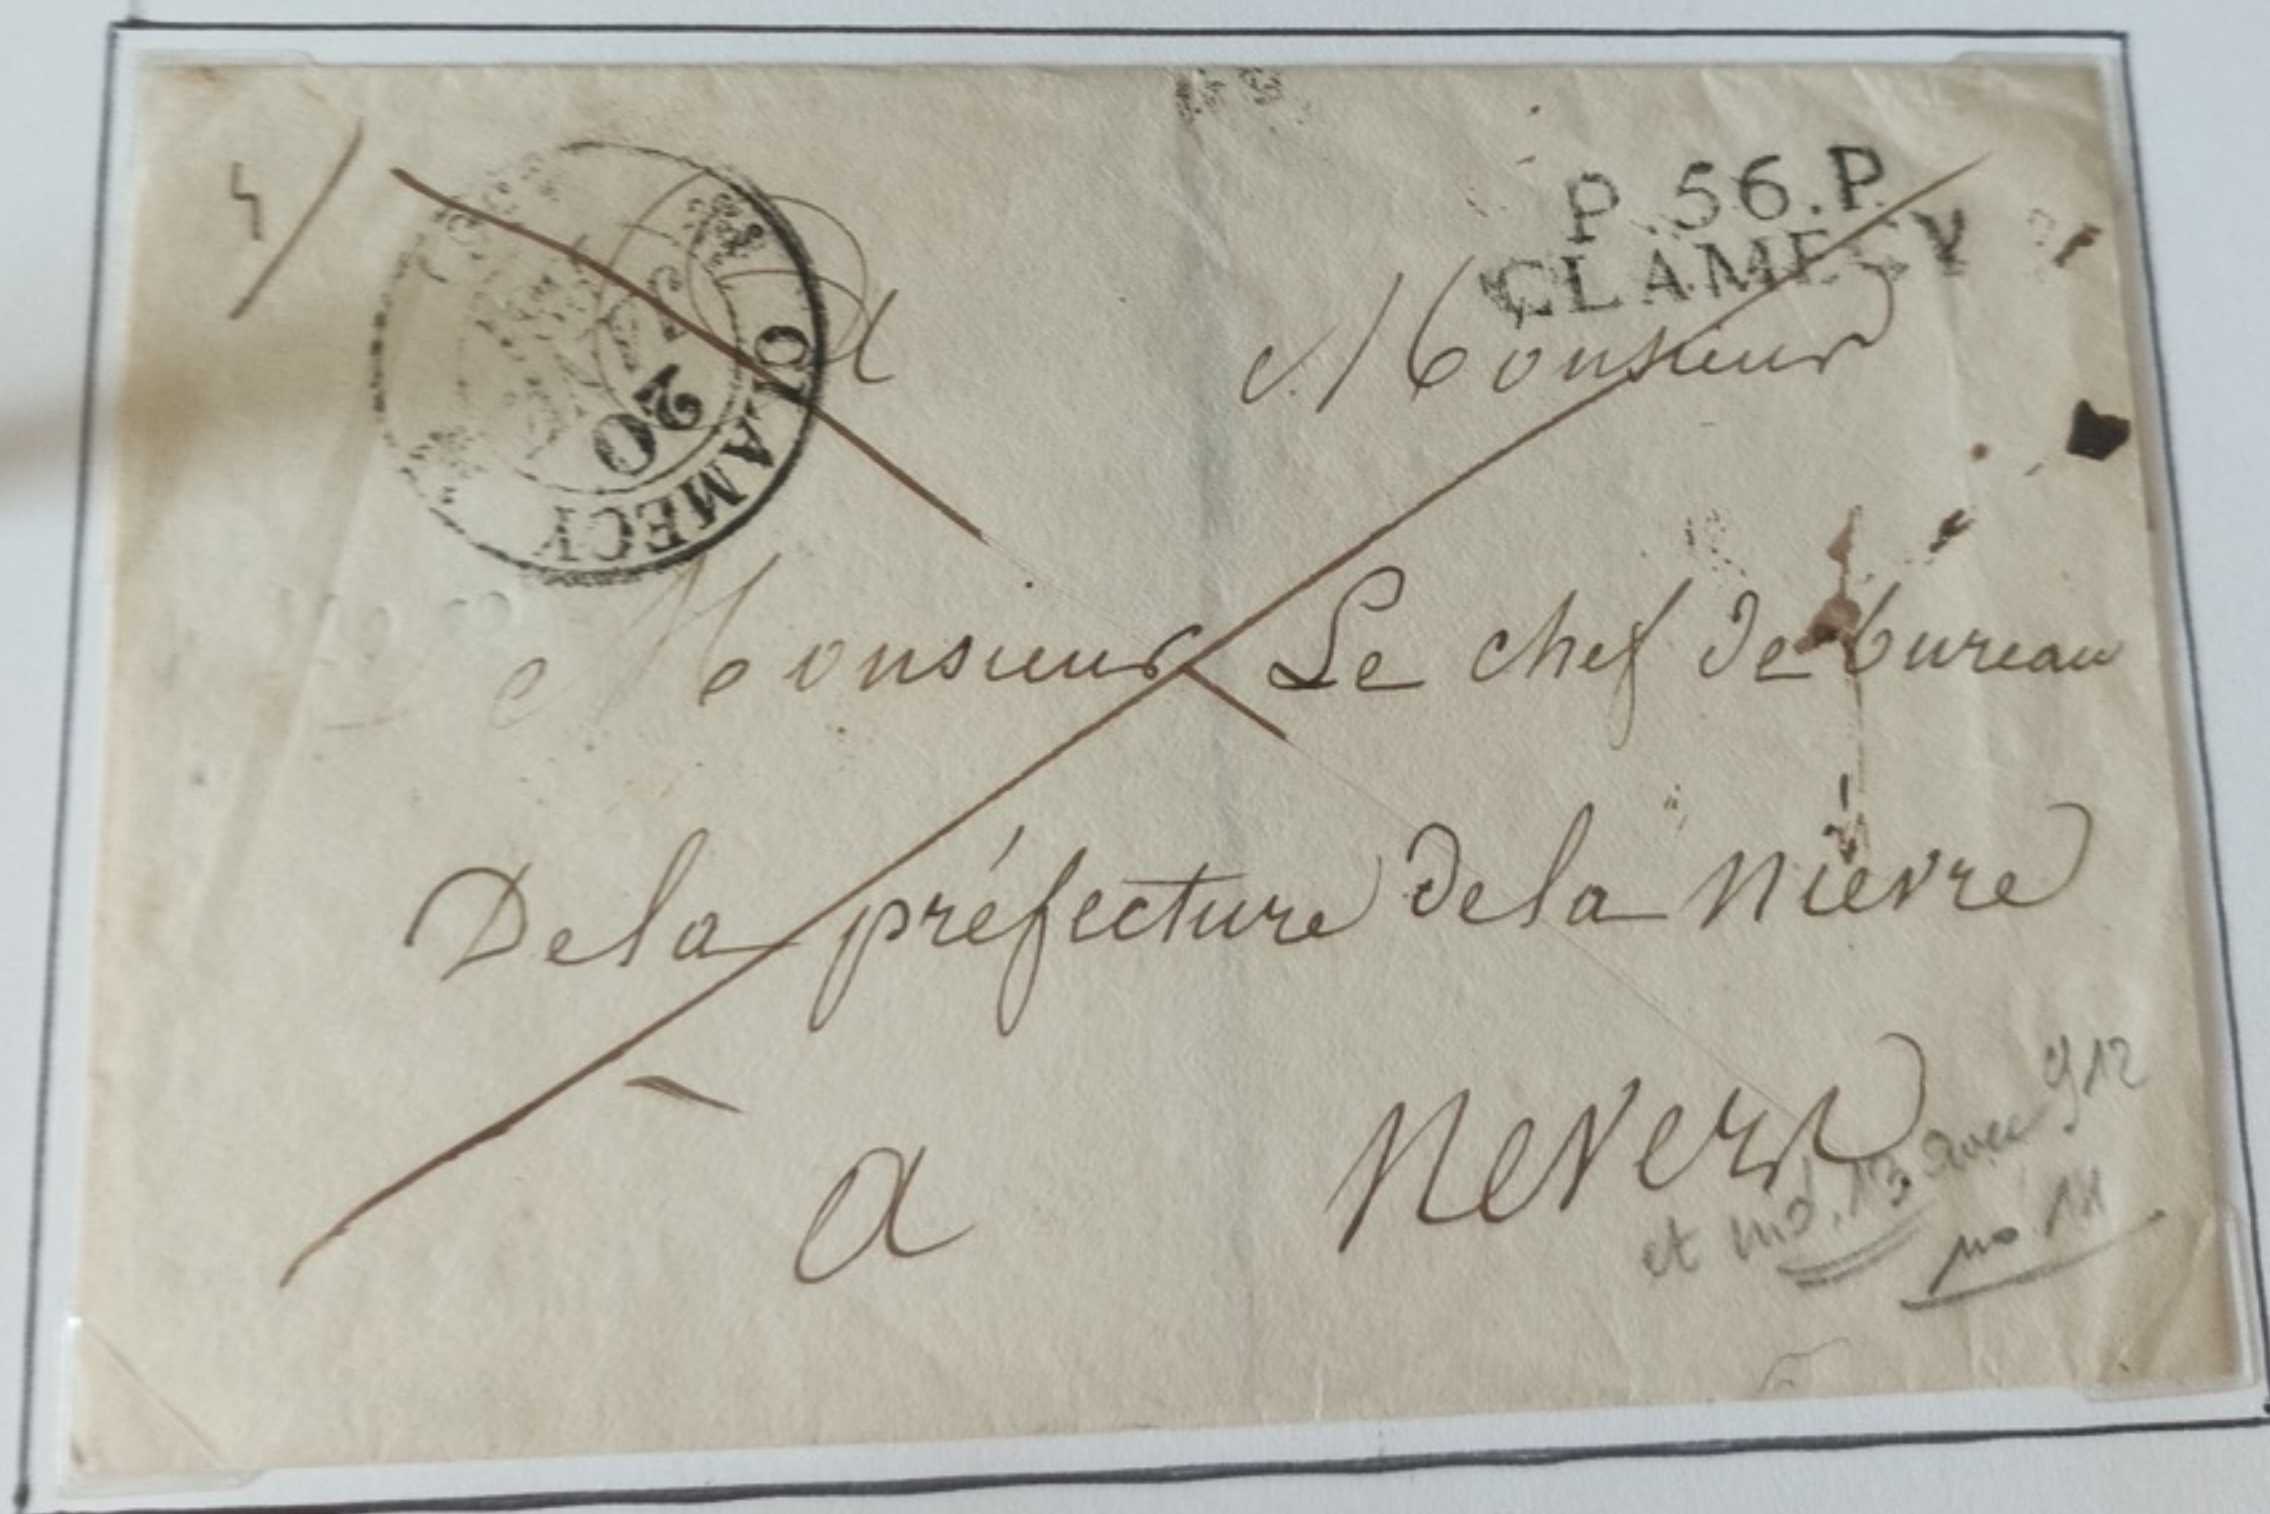 P.56.P.
CLAMECY
CLAMECY
20
A Monsieur
Monsieur Le chef de bureau
De la préfecture de la Nievre
a Nevers
et ind. 13 avec
no 14